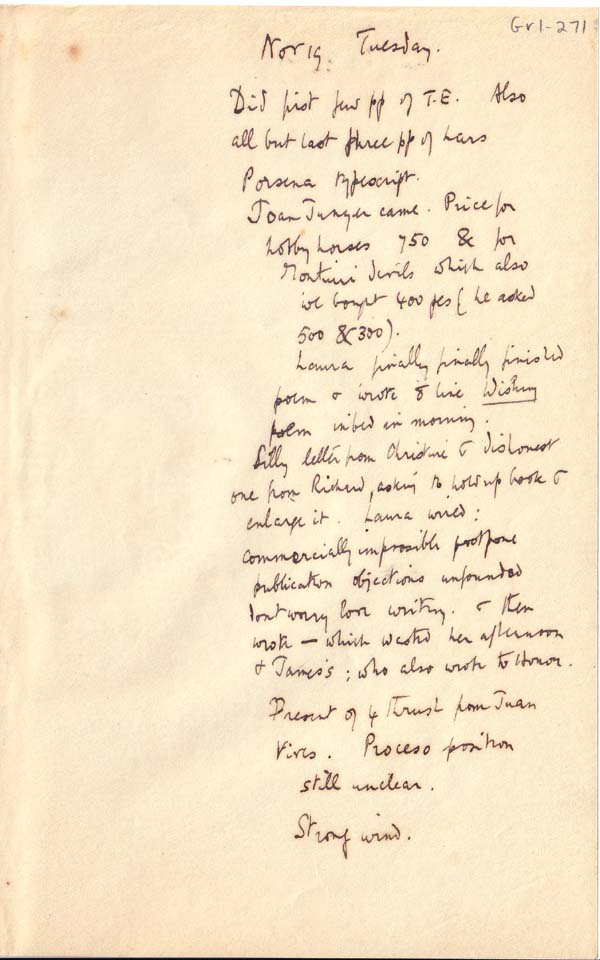 Gr1-271
Nov 19 Tuesday.
Did first few pp of T.E. Also
all but last three pp of Lars
Porsena typescript.
Joan Junyer came. Price for
hobby horses 750 & for
devils which also
we bought 400 pes (he asked
500 & 300).
Laura finally finally finished
poem & wrote 8 line Wishing
poem in bed in morning.
Silly letter from Christine & dishonest
one from Richard, asking to hold up book &
enlarge it. Laura wired:
commercially impossible postpone
publication objections unfounded
dont worry love writing. & then
wrote — which wasted her afternoon
& James's; who also wrote to Honor.
Present of 4 thrush from Juan
Vives. Proceso position
still unclear.
Strong wind.